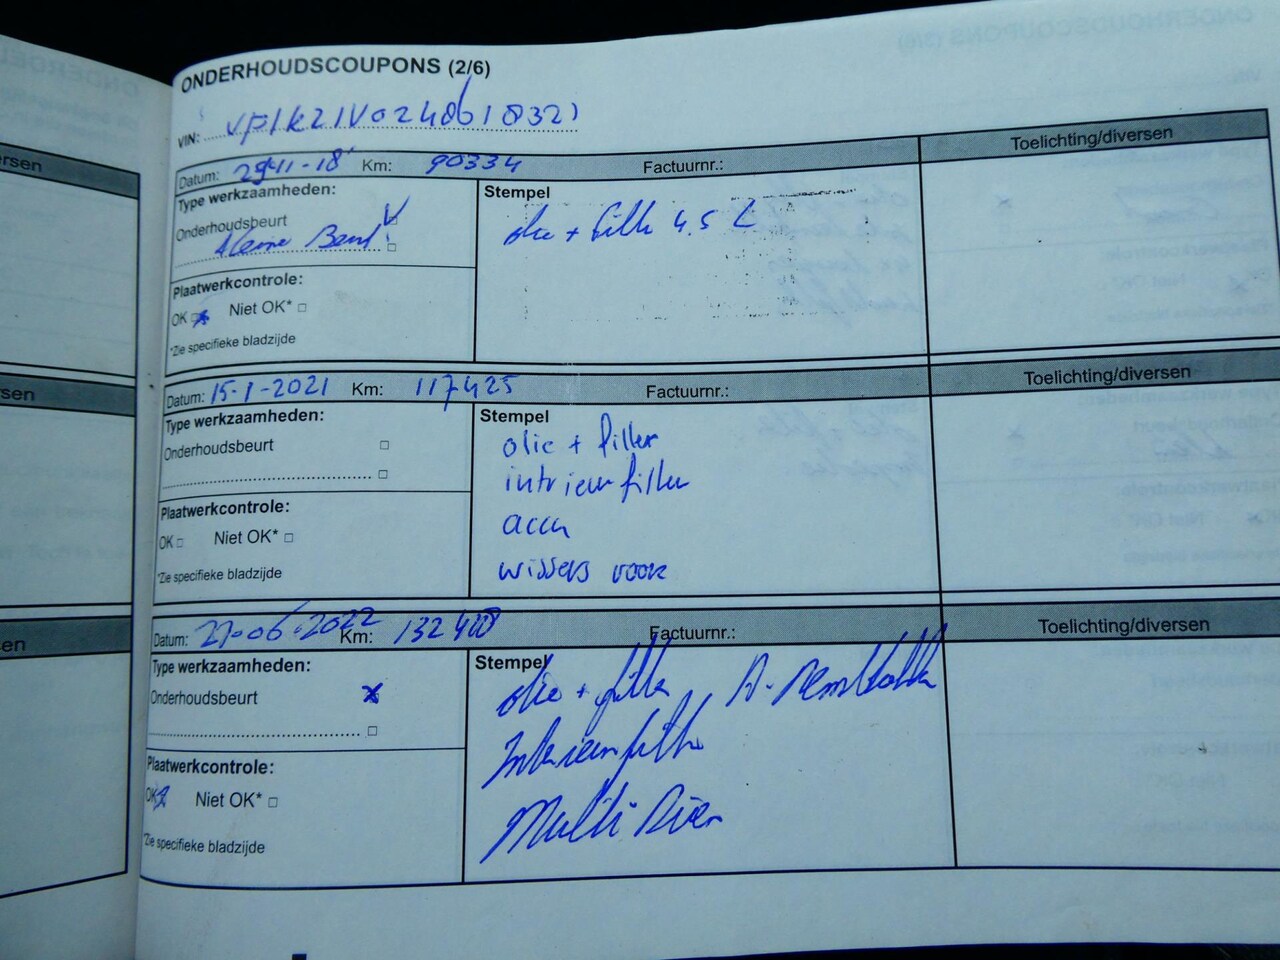 ONDERHOUDSCOUPONS (2/6)
VIN:
Toelichting/diversen
Datum: 29-11-18 Km: 90334 Factuurnr.:
Type werkzaamheden:
Onderhoudsbeurt
kleine Beurt
Stempel
olie + filter 4.5 L
Plaatwerkcontrole:
OK Niet OK*
*Zie specifieke bladzijde
Datum: 15-1-2021 Km: 117425 Factuurnr.:
Toelichting/diversen
Type werkzaamheden:
Onderhoudsbeurt
Stempel
olie + filter
intrieur filter
accu
wissers voor
Plaatwerkcontrole:
OK Niet OK*
*Zie specifieke bladzijde
Datum: 27-06-2022 Km: 132408 Factuurnr.:
Toelichting/diversen
Type werkzaamheden:
Onderhoudsbeurt
Stempel
olie + filter A-Remblokken
Interieurfilter
Multi Riem
Plaatwerkcontrole:
OK Niet OK*
*Zie specifieke bladzijde
ersen
sen
en